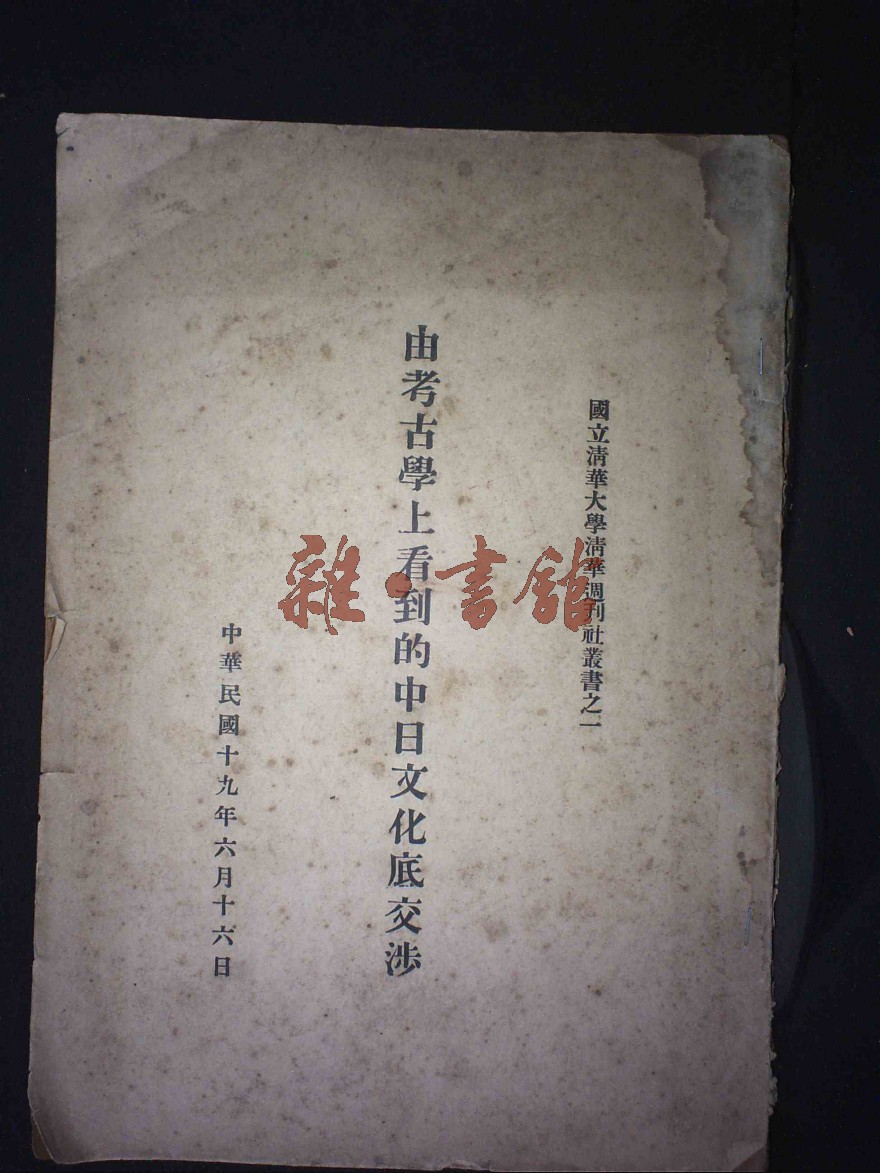 國立清華大學清華週刊社叢書之一
由考古學上看到的中日文化底交涉
中華民國十九年六月十六日
雜·書館